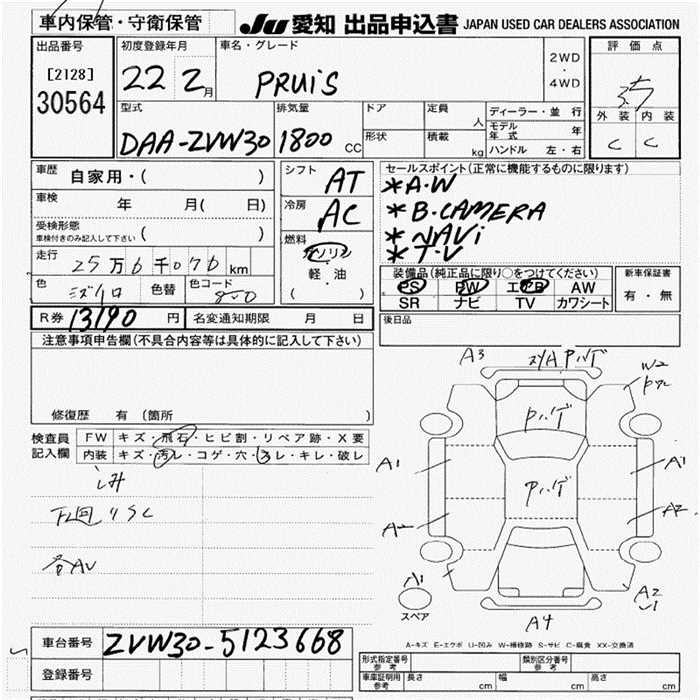 車内保管・守衛保管 JU 愛知 出品申込書 JAPAN USED CAR DEALERS ASSOCIATION
出品番号 初度登録年月 車名・グレード 2WD ・ 4WD 評価点
[2128]
30564
22 2月 PRUiS
型式 排気量 ドア 定員 人 ディーラー・並行
形状 積載 kg モデル年式 年
DAA-ZVW30 1800 CC ハンドル 左・右
外装 内装
C C
車歴 自家用・( )
シフト AT
セールスポイント(正常に機能するものに限ります)
車検 年 月( 日)
冷房 AC
*A・W
*B.CAMERA
*NAVi
*T・V
受検形態
車検付きのみ記入して下さい ( )
燃料 ガソリン
軽・油
( )
走行 25万6千076km
装備品(純正品に限り○をつけてください) 新車保証書
色 色替 色コード
PS PW エアB AW
SR ナビ TV カワシート
有・無
R券 13190円 名変通知期限 月 日
後日品
注意事項申告欄(不具合内容等は具体的に記入して下さい)
修復歴 有(箇所 )
検査員記入欄 FW キズ・飛石・ヒビ割・リペア跡・X要
内装 キズ・汚レ・コゲ・穴・スレ・キレ・破レ
シミ
下回りSC
各AU
A3
W2
Pハゲ
Pハゲ
A1 A1
A2 A2
A1
スペア
A2
A4
A-キズ E-エクボ U-凹み W-補修跡 S-サビ C-腐食 XX-交換済
車台番号 ZVW30-5123668
登録番号
形式指定番号 参考 類別区分番号 参考
車庫証明用 参考 長さ cm 幅 cm 高さ cm